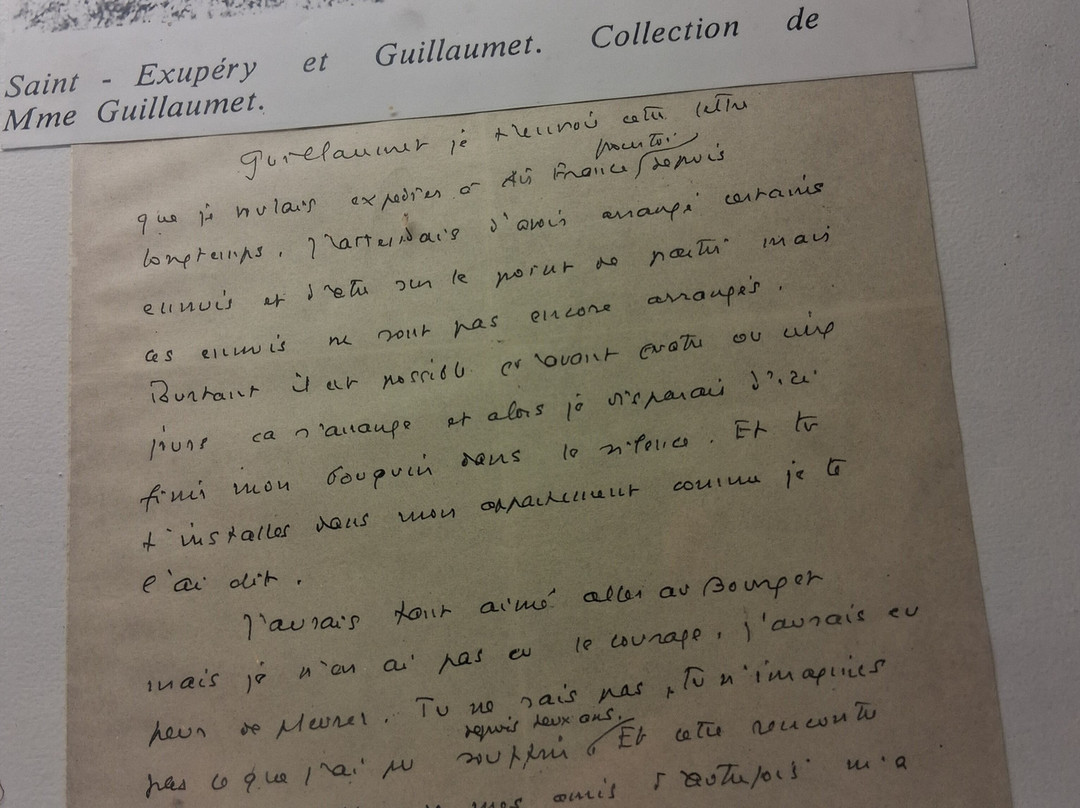 Saint - Exupéry et Guillaumet. Collection de
Mme Guillaumet.
Guillaumet je t'envoie cette lettre
pour toi
que je voulais expédier à Air France depuis
longtemps. J'attendais d'avoir arrangé certains
ennuis et d'être sur le point de partir mais
ces ennuis ne sont pas encore arrangés.
Pourtant il est possible qu'avant quatre ou cinq
jours ca s'arrange et alors je disparais d'ici
finir mon bouquin dans le silence. Et tu
t'installes dans mon appartement comme je te
l'ai dit.
J'aurais tant aimé aller au Bourget
mais je n'en ai pas eu le courage. J'aurais eu
peur de pleurer. Tu ne sais pas, Tu n'imagines
depuis deux ans.
pas ce que j'ai pu souffrir. Et cette rencontre
mes amis d'autrefois m'a